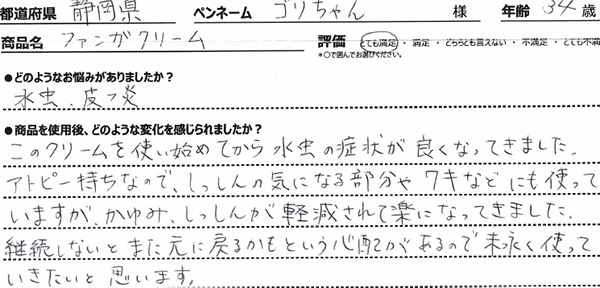 都道府県 静岡県 ペンネーム ゴリちゃん 様 年齢 34歳
商品名 ファンガクリーム 評価 とても満足・満足・どちらとも言えない・不満足・とても不満
*○で囲んでお選びください。
●どのようなお悩みがありましたか?
水虫、皮フ炎
●商品を使用後、どのような変化を感じられましたか?
このクリームを使い始めてから水虫の症状が良くなってきました。
アトピー持ちなので、しっしんの気になる部分やワキなどにも使って
いますが、かゆみ、しっしんが軽減されて楽になってきました。
継続しないとまた元に戻るかもという心配があるので末永く使って
いきたいと思います。